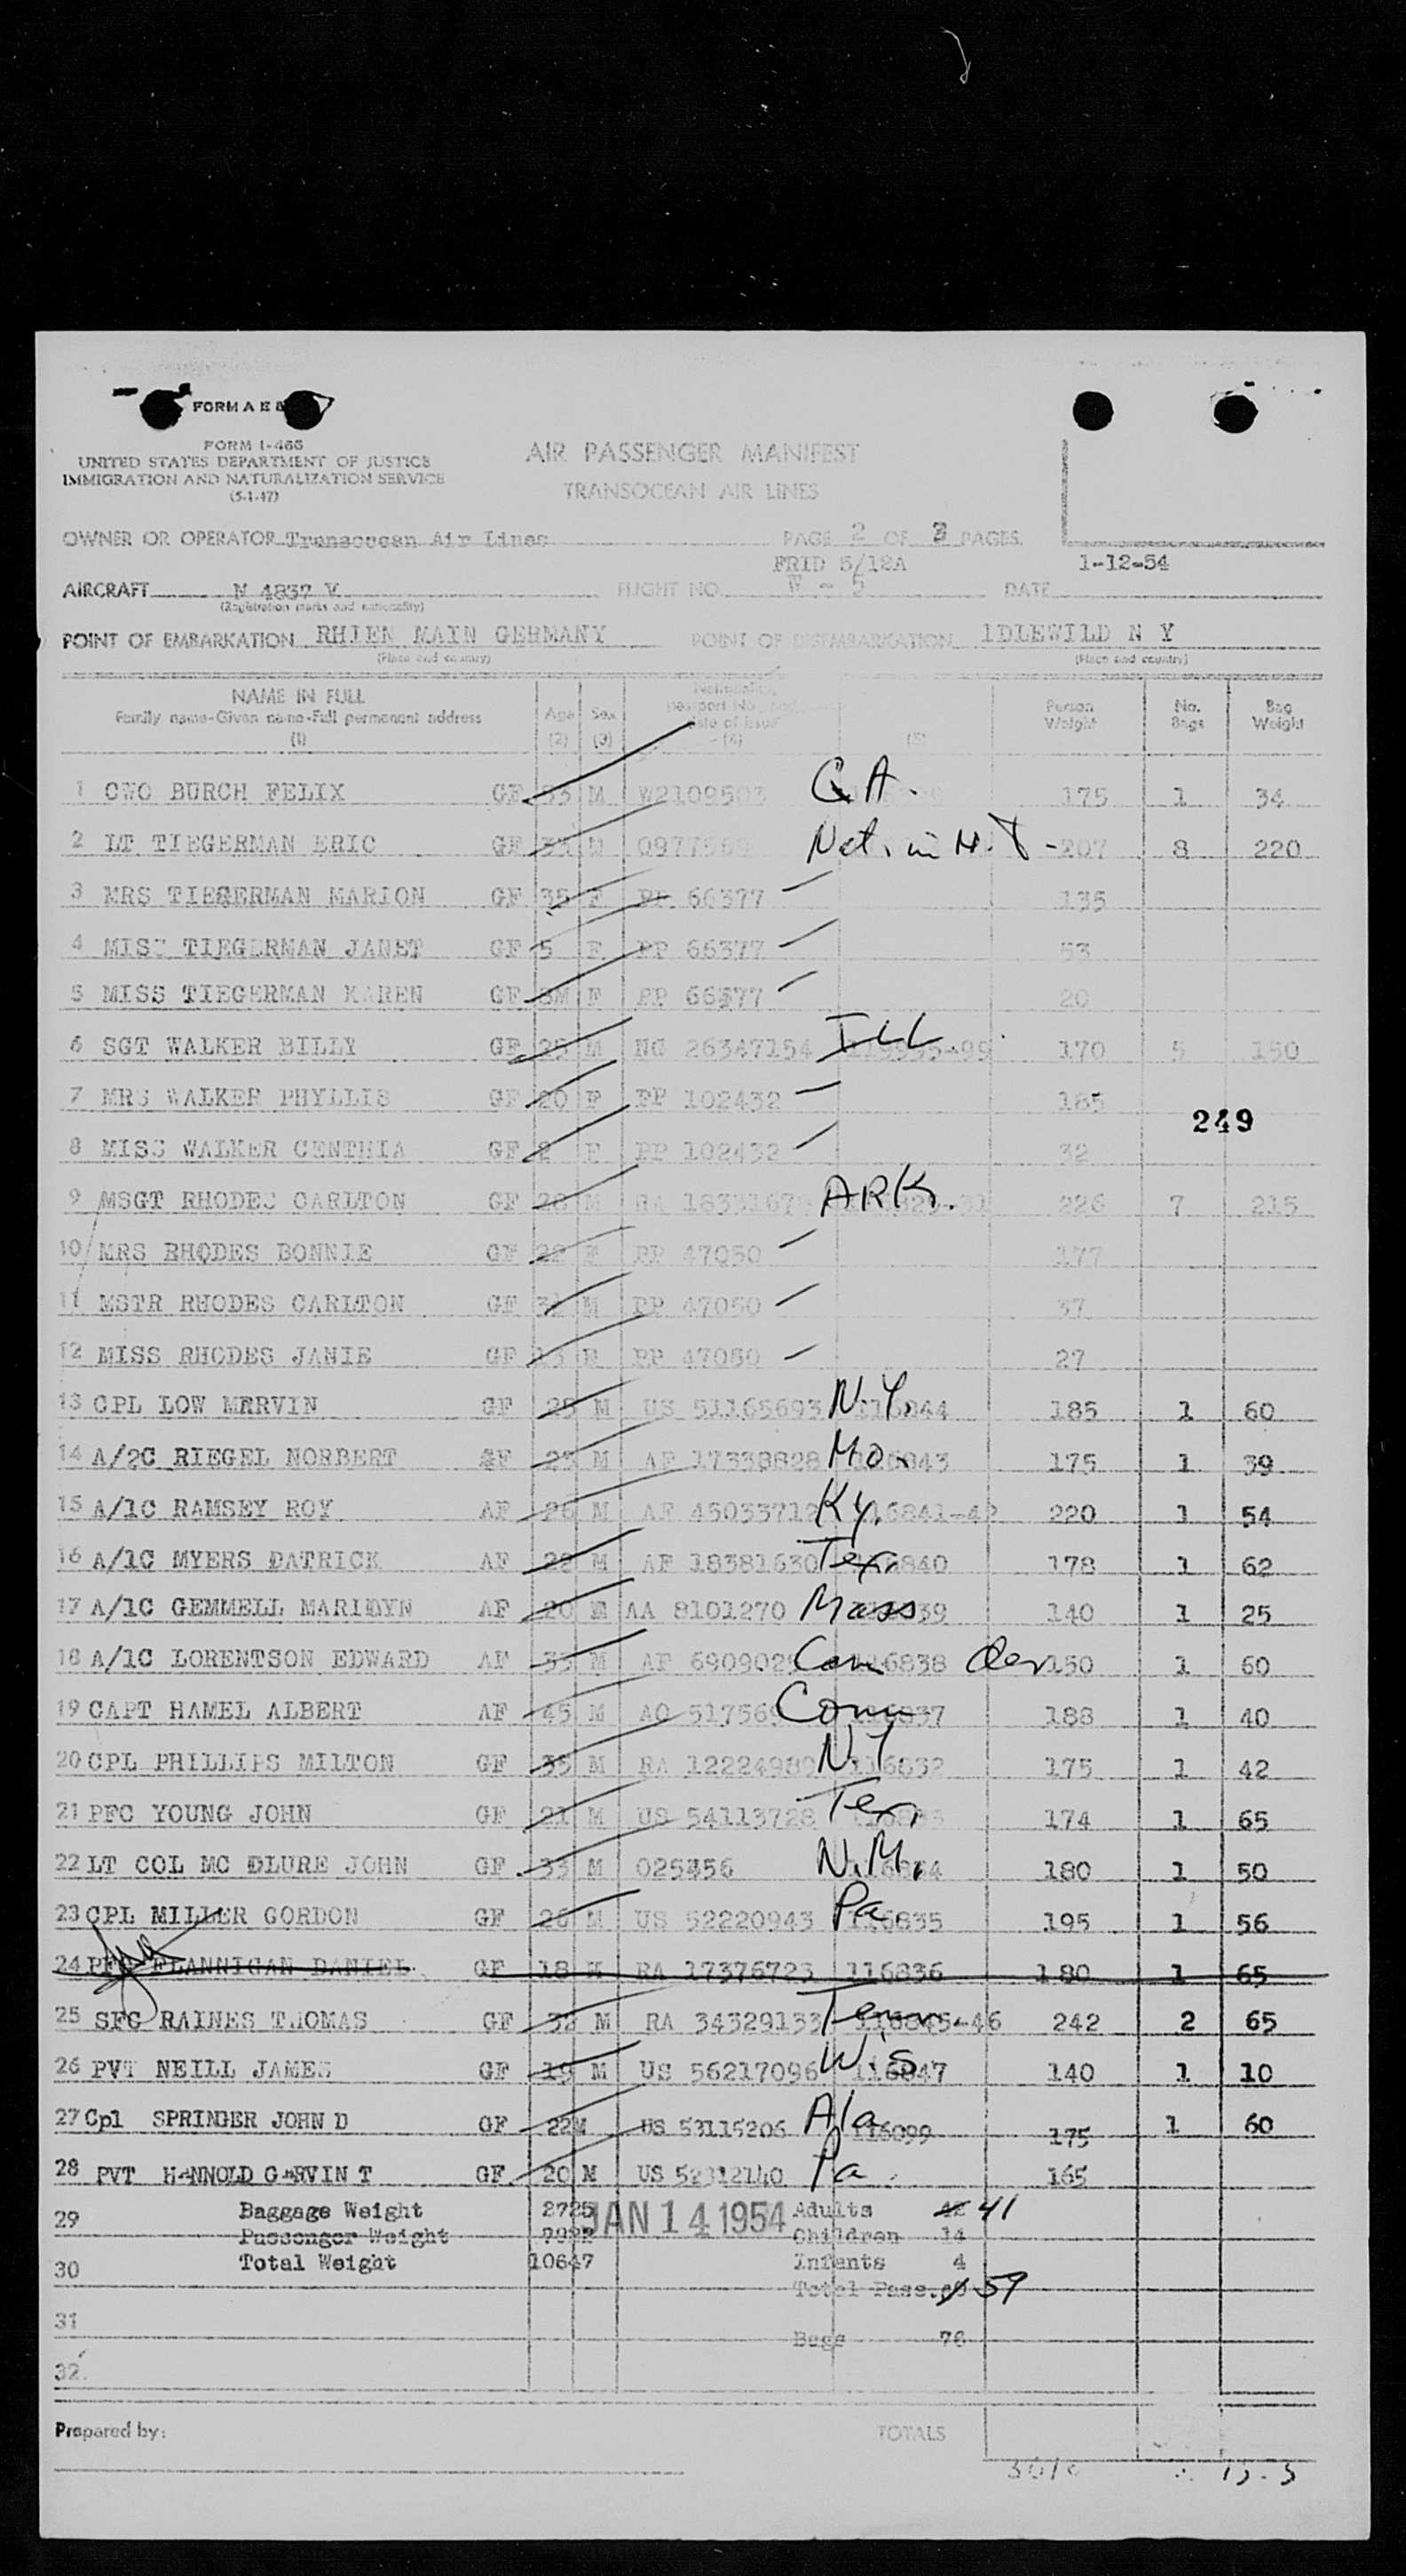 FORM A E
FORM I-466
UNITED STATES DEPARTMENT OF JUSTICE
IMMIGRATION AND NATURALIZATION SERVICE
(5-1-47)
AIR PASSENGER MANIFEST
TRANSOCEAN AIR LINES
OWNER OR OPERATOR Transocean Air Lines PAGE 2 OF 3 PAGES
FRID 5/12A 1-12-54
AIRCRAFT N 4837 V FLIGHT NO. W - 5 DATE
(Registration marks and nationality)
POINT OF EMBARKATION RHIEN MAIN GERMANY POINT OF DISEMBARKATION IDLEWILD N Y
(Place and country) (Place and country)
NAME IN FULL Age Sex Person Weight No. Bags Bag Weight
Family name-Given name-Full permanent address
(1) (2) (3) (4) (5)
1 CWO BURCH FELIX GF 33 M W2109503 GA. 175 1 34
2 LT TIEGERMAN ERIC GF M 0977569 Nat. in N.Y - 207 8 220
3 MRS TIEGERMAN MARION GF 35 F PP 66377 135
4 MISS TIEGERMAN JANET GF 5 F PP 66377 53
5 MISS TIEGERMAN KAREN GF 3M F PP 66377 20
6 SGT WALKER BILLY GF 25 M NG 26347154 ILL 170 5 150
7 MRS WALKER PHYLLIS GF 20 F PP 102432 185
249
8 MISS WALKER CENTHIA GF 2 F PP 102432 32
9 MSGT RHODES CARLTON GF 28 M RA 1833167 ARK. 226 7 215
10 MRS RHODES BONNIE GF 22 F PP 47050 177
11 MSTR RHODES CARLTON GF M PP 47050 37
12 MISS RHODES JANIE GF F PP 47050 27
13 CPL LOW MERVIN GF 25 M US 51165693 N.Y. 116844 185 1 60
14 A/2C RIEGEL NORBERT GF 23 M AF 17338828 Mo. 116843 175 1 39
15 A/1C RAMSEY ROY AF 26 M AF 45033712 Ky. 116841-42 220 1 54
16 A/1C MYERS DATRICK AF 22 M AF 18381630 Tex. 116840 178 1 62
17 A/1C GEMMELL MARILYN AF 20 F AA 8101270 Mass 39 140 1 25
18 A/1C LORENTSON EDWARD AF 33 M AF 690902 116838 150 1 60
19 CAPT HAMEL ALBERT AF 45 M AO 51756 Conn 116837 188 1 40
20 CPL PHILLIPS MILTON GF 35 M RA 12224980 NY 116832 175 1 42
21 PFC YOUNG JOHN GF 21 M US 54113728 Tex, 174 1 65
22 LT COL MC DLURE JOHN GF 33 M 025456 N.M. 180 1 50
23 CPL MILLER GORDON GF 26 M US 52220943 Pa. 116835 195 1 56
24 PFC FLANNIGAN DANIEL GF 18 M RA 17376723 116836 180 1 65
25 SFC RAINES THOMAS GF 32 M RA 34329133 Tenn. 116845-46 242 2 65
26 PVT NEILL JAMES GF 19 M US 56217096 Wis 116847 140 1 10
27 Cpl SPRINGER JOHN D GF 22 M US 53115206 Ala 116099 175 1 60
28 PVT HANNOLD GARVIN T GF 20 M US 52312140 Pa. 165
29 Baggage Weight 2725 JAN 14 1954 Adults 42 41
Passenger Weight 7922 Children 14
30 Total Weight 10647 Infants 4
Total Pass. 59
31
Bags 76
32
Prepared by: TOTALS